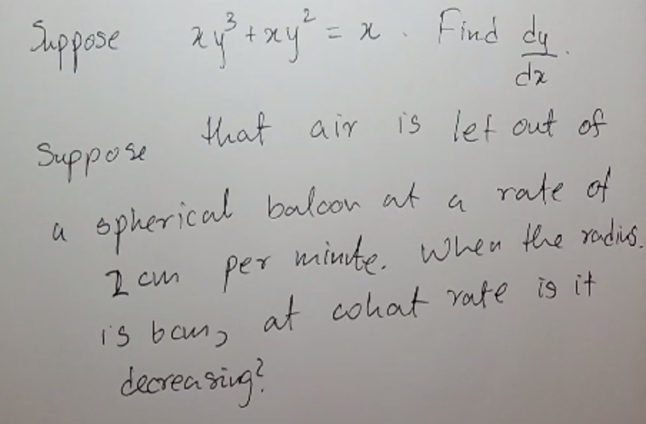 Suppose xy³ + xy² = x. Find dy/dx.
Suppose that air is let out of
a spherical baloon at a rate of
2 cm per minute. When the radius.
is 6cm, at what rate is it
decreasing?